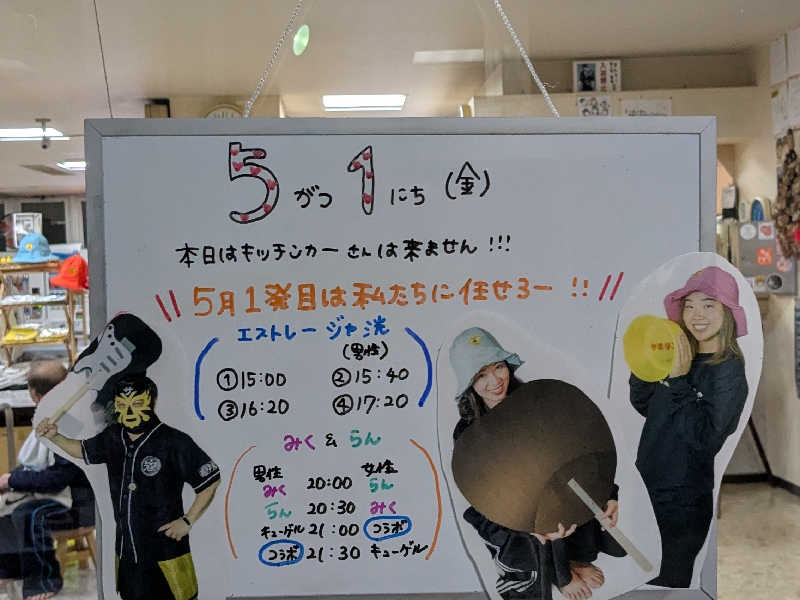 5がつ1にち(金)
本日はキッチンカーさんは来ません!!!
5月1発目は私たちに任せろー!!
エストレージャ洸
(男性)
①15:00 ②15:40
③16:20 ④17:20
みく & らん
男性 女性
みく 20:00 らん
らん 20:30 みく
キューゲル 21:00 コラボ
コラボ 21:30 キューゲル